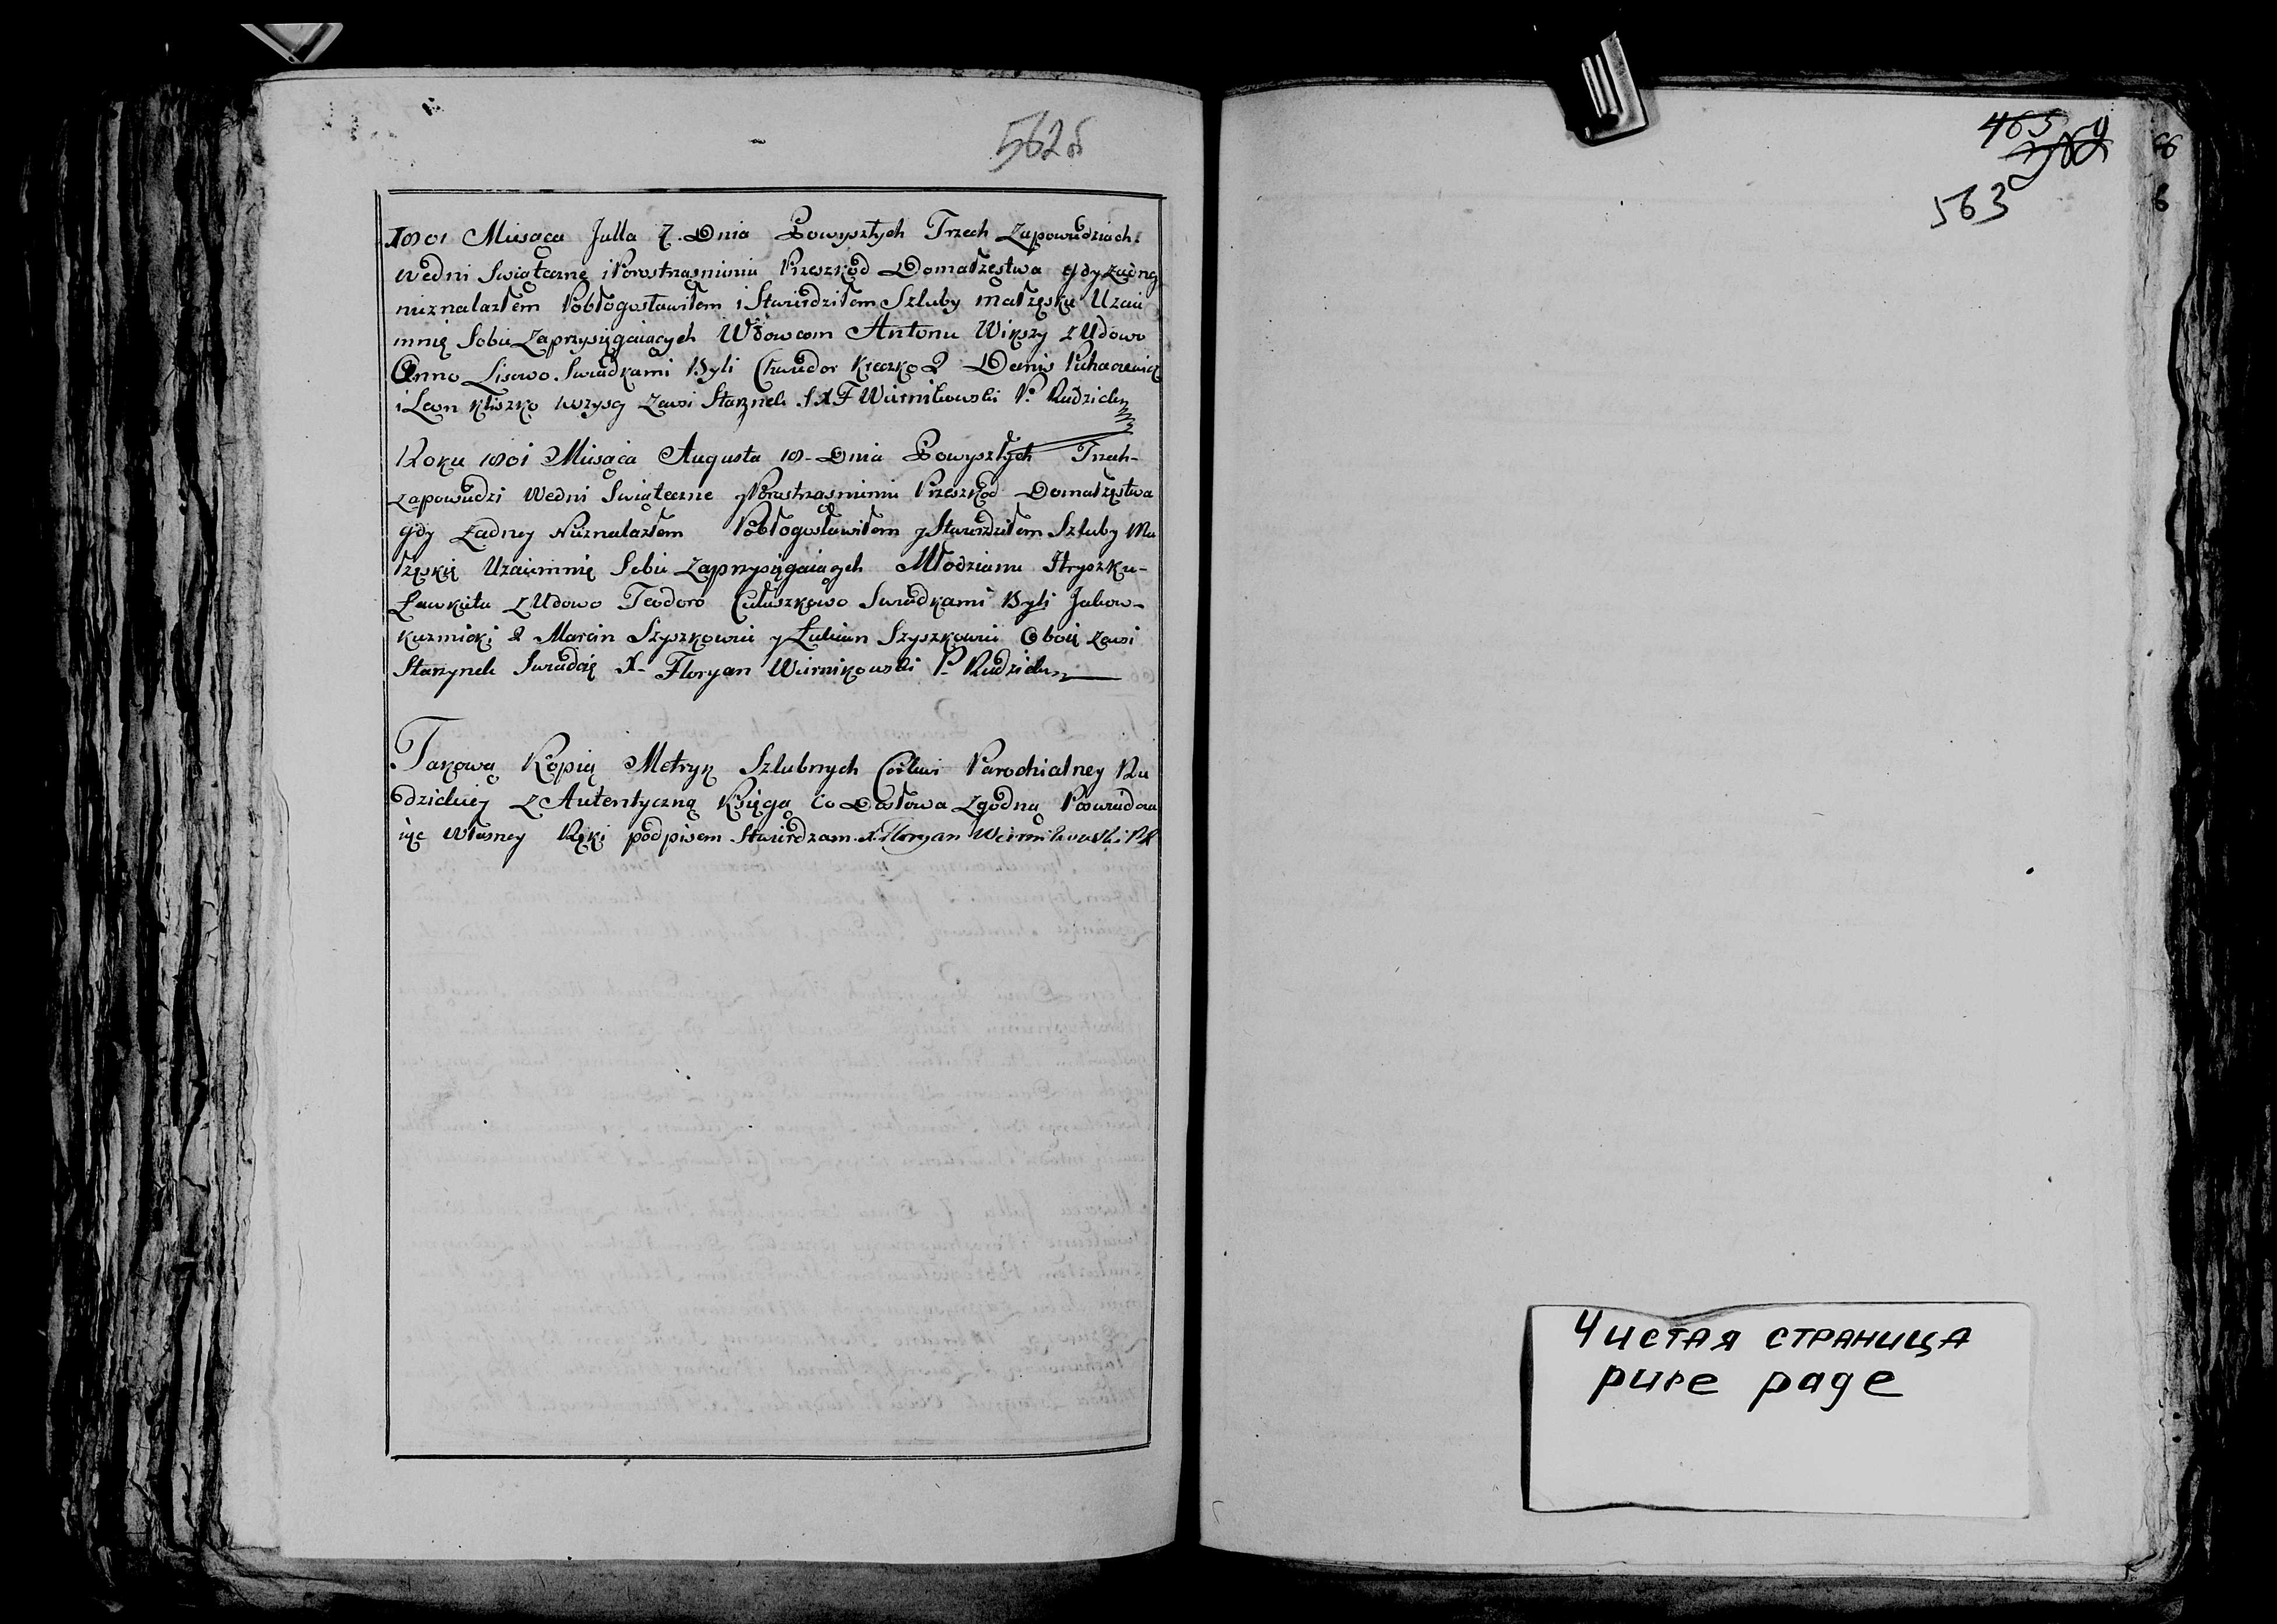 562 об
1801 Miesąca Julla 7. Dnia Powyszłych Trzech Zapowiedziach
Wedni Swiąteczne i Porostrząsnieniu Przeszkod Domałzęstwa gdy Zadney
nieznalazłem Pobłogosławiłem i Stwierdziłem Szluby małzęskie Uzaie
mnię Sobie Zaprzysięgaiących Wdowcom Antonu Wikszy z Udowo
Anno Lisowo. Swiadkami Byli Chwiedor Kieczko 2 Denis Puhaczewicz
i Leon Kliszko wszyscy Zewsi Starzynek S X F Wiernikowski P. Rudzicki
Roku 1801 Miesąca Augusta 18 - Dnia Powyszłych Trzech -
Zapowiedzi Wedni Swiąteczne y Porostrząsnieniu Przeszkod Domałzęstwa
gdy Żadney Nieznalazłem Pobłogosławiłem y Stwierdziłem Szluby Ma
łzęskię Uzaiemnię Sobie Zaprzysięgaiących Młodzianu Hryszku -
Ławkietu z Udowo Teodoro Swiadkami Byli Jakow -
Kuzmicki 2 Marcin Szyszkowiec y Łukian Szyszkowiec Oboię Zewsi
Starzynek Swiadcię X - Floryan Wiernikowski P. Rudzicki
Takową Kopię Metryk Szlubnych Cerkwi Parochialney Ru
dzickiey z Autentyczną Księgą Co Dosłowa Zgodną Poswiadcza
iąc Własney Ręki podpisem Stwierdzam. X. Floryan Wiernikowski P R
465
563
Чистая страница
pure page